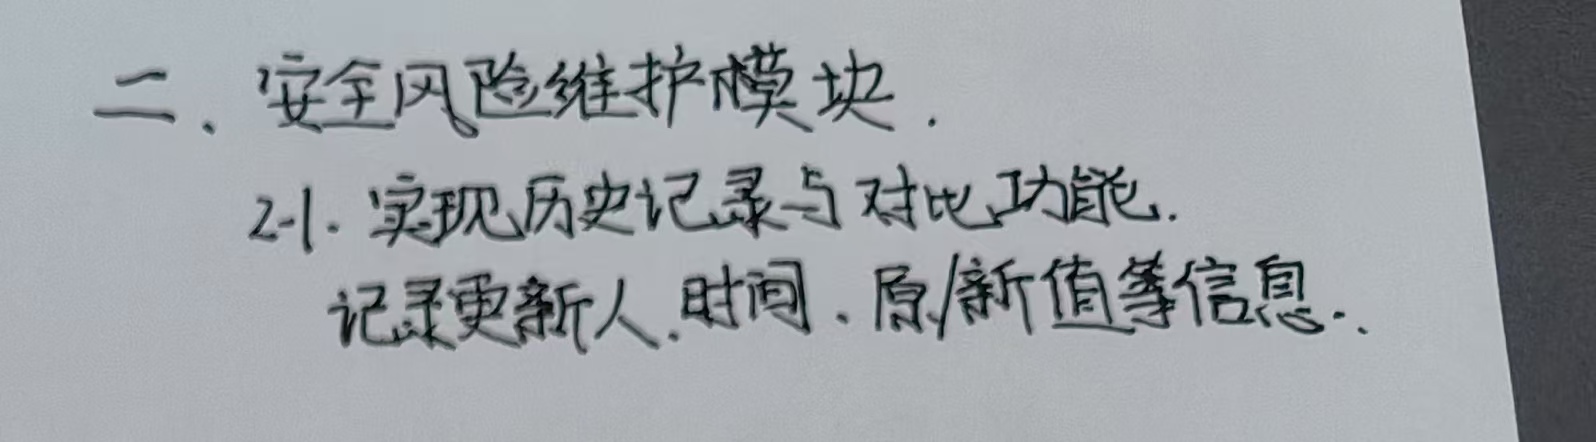 二、安全风险维护模块.
2-1. 实现历史记录与对比功能.
记录更新人、时间、原/新值等信息..